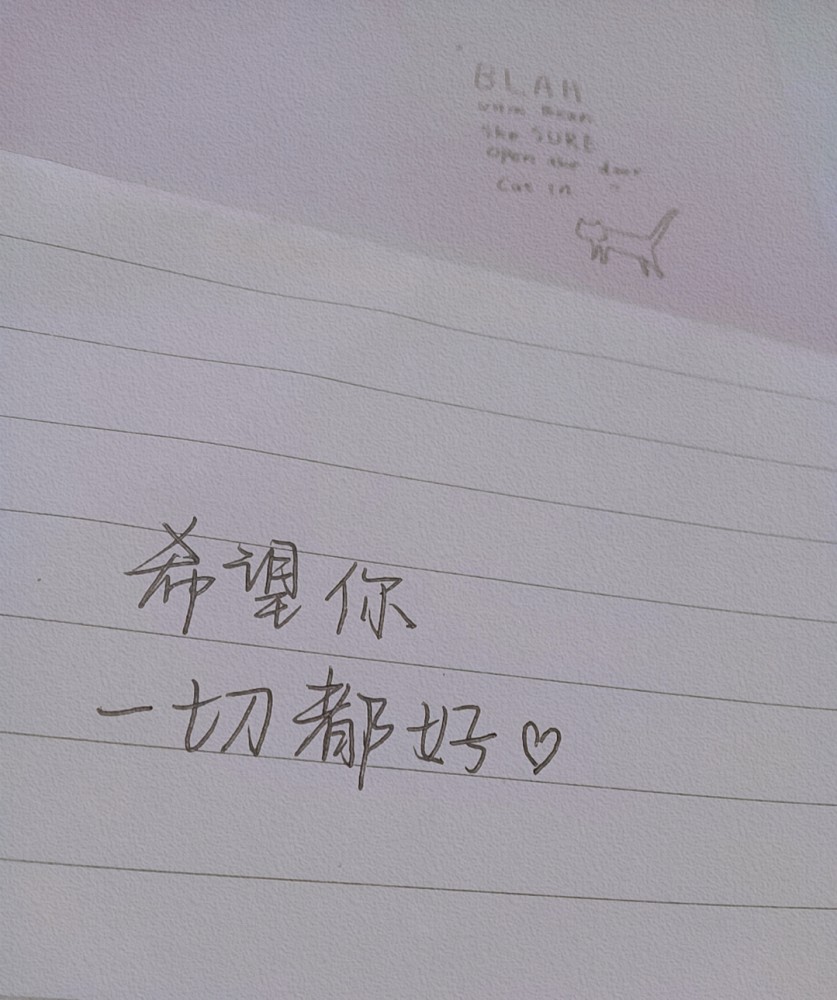 BLAH
the SURE
open the door
Cat in
希望你
一切都好♡